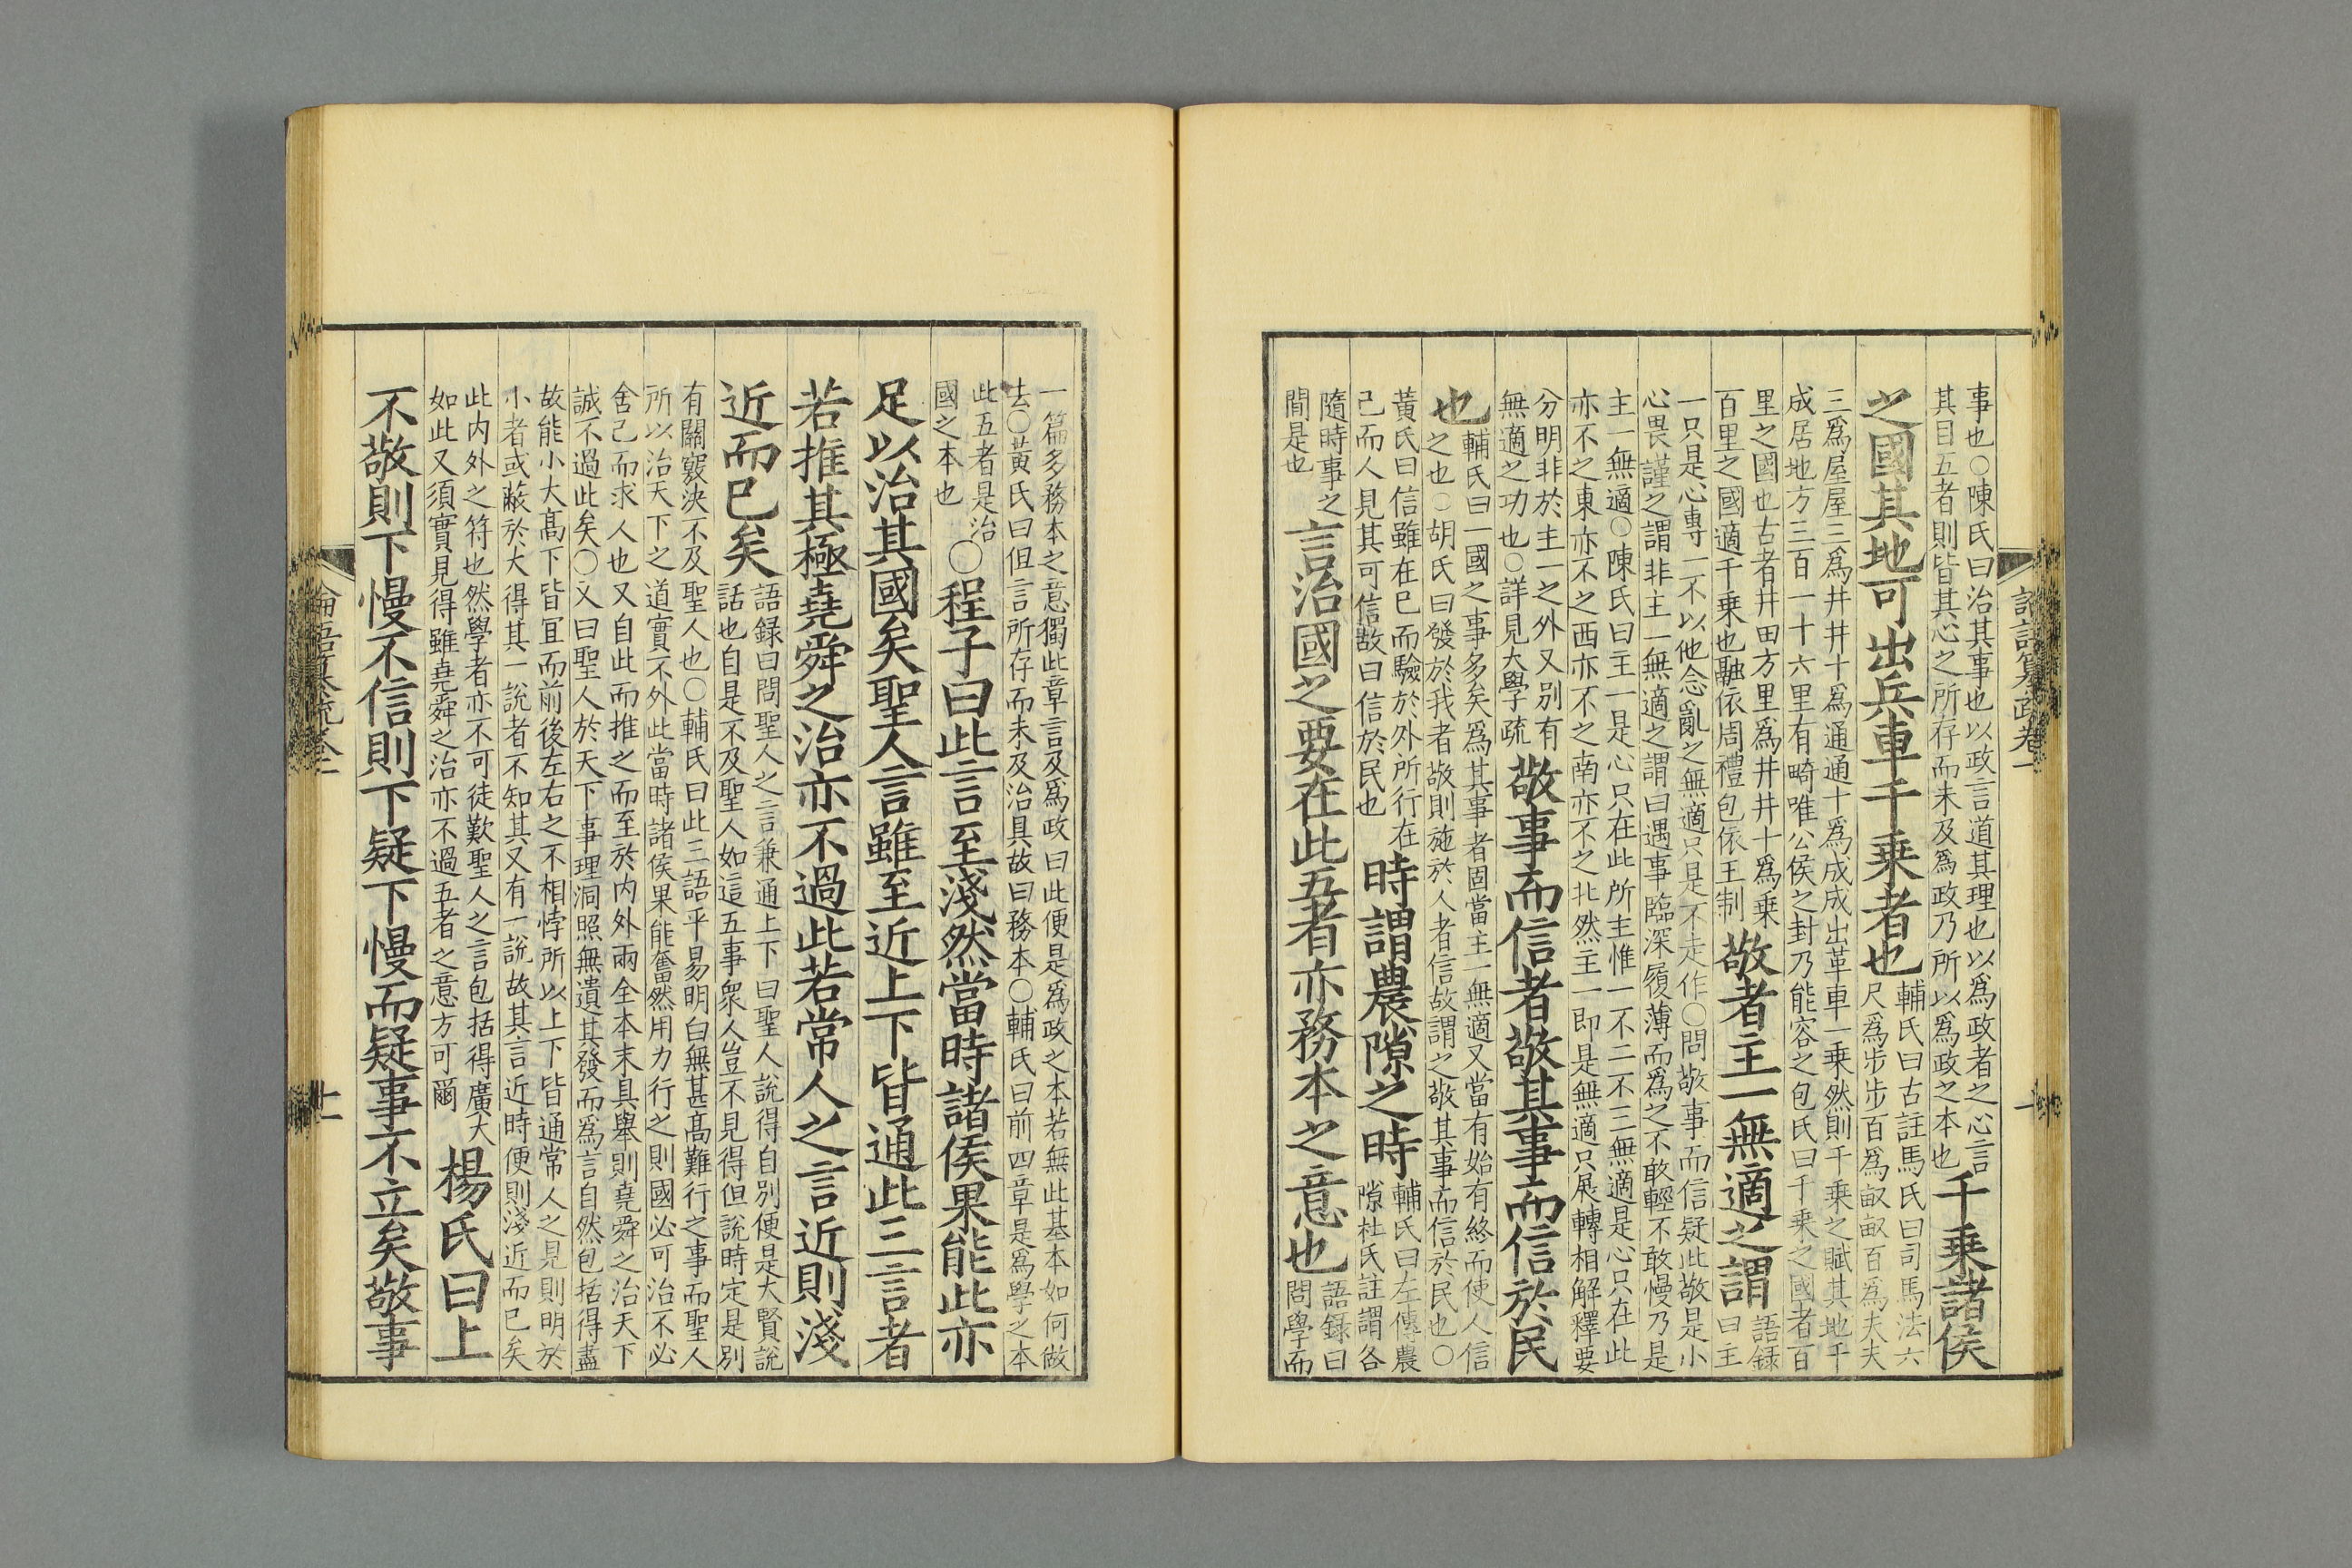 事也○陳氏曰治其事也以政言道其理也以爲政者之心言
其目五者則皆其心之所存而未及爲政乃所以爲政之本也
千乗諸侯
之國其地可出兵車千乗者也
輔氏曰古註馬氏曰司馬法六
尺爲步步百爲畝畝百爲夫夫
三爲屋屋三爲井井十爲通通十爲成成出革車一乗然則千乗之賦其地千
成居地方三百一十六里有畸唯公侯之封乃能容之包氏曰千乗之國者百
里之國也古者井田方里爲井井十爲乗
百里之國適千乗也融依周禮包依王制
敬者主一無適之謂
語録
曰主
一只是心專一不以他念亂之無適只是不走作○問敬事而信疑此敬是小
心畏謹之謂非主一無適之謂曰遇事臨深履薄而爲之不敢輕不敢慢乃是
主一無適○陳氏曰主一是心只在此所主惟一不二不三無適是心只在此
亦不之東亦不之西亦不之南亦不之北然主一即是無適只展轉相解釋要
分明非於主一之外又別有
無適之功也○詳見大學疏
敬事而信者敬其事而信於民
也
輔氏曰一國之事多矣爲其事者固當主一無適又當有始有終而使人信
之也○胡氏曰發於我者敬則施於人者信故謂之敬其事而信於民也○
黃氏曰信雖在己而驗於外所行在
己而人見其可信故曰信於民也
時謂農隙之時
輔氏曰左傳農
隙杜氏註謂各
隨時事之
間是也
言治國之要在此五者亦務本之意也
語録曰
問學而
一篇多務本之意獨此章言及爲政曰此便是爲政之本若無此基本如何做
去○黃氏曰但言所存而未及治具故曰務本○輔氏曰前四章是爲學之本
此五者是治
國之本也
○程子曰此言至淺然當時諸侯果能此亦
足以治其國矣聖人言雖至近上下皆通此三言者
若推其極堯舜之治亦不過此若常人之言近則淺
近而已矣
語録曰問聖人之言兼通上下曰聖人說得自別便是大賢說
話也自是不及聖人如這五事衆人豈不見得但說時定是別
有關竅決不及聖人也○輔氏曰此三語平易明白無甚高難行之事而聖人
所以治天下之道實不外此當時諸侯果能奮然用力行之則國必可治不必
舍己而求人也又自此而推之而至於内外兩全本末具舉則堯舜之治天下
誠不過此矣○又曰聖人於天下事理洞照無遺其發而爲言自然包括得盡
故能小大高下皆冝而前後左右之不相悖所以上下皆通常人之見則明於
小者或蔽於大得其一說者不知其又有一說故其言近時便則淺近而已矣
此内外之符也然學者亦不可徒歎聖人之言包括得廣大
如此又須實見得雖堯舜之治亦不過五者之意方可爾
楊氏曰上
不敬則下慢不信則下疑下慢而疑事不立矣敬事